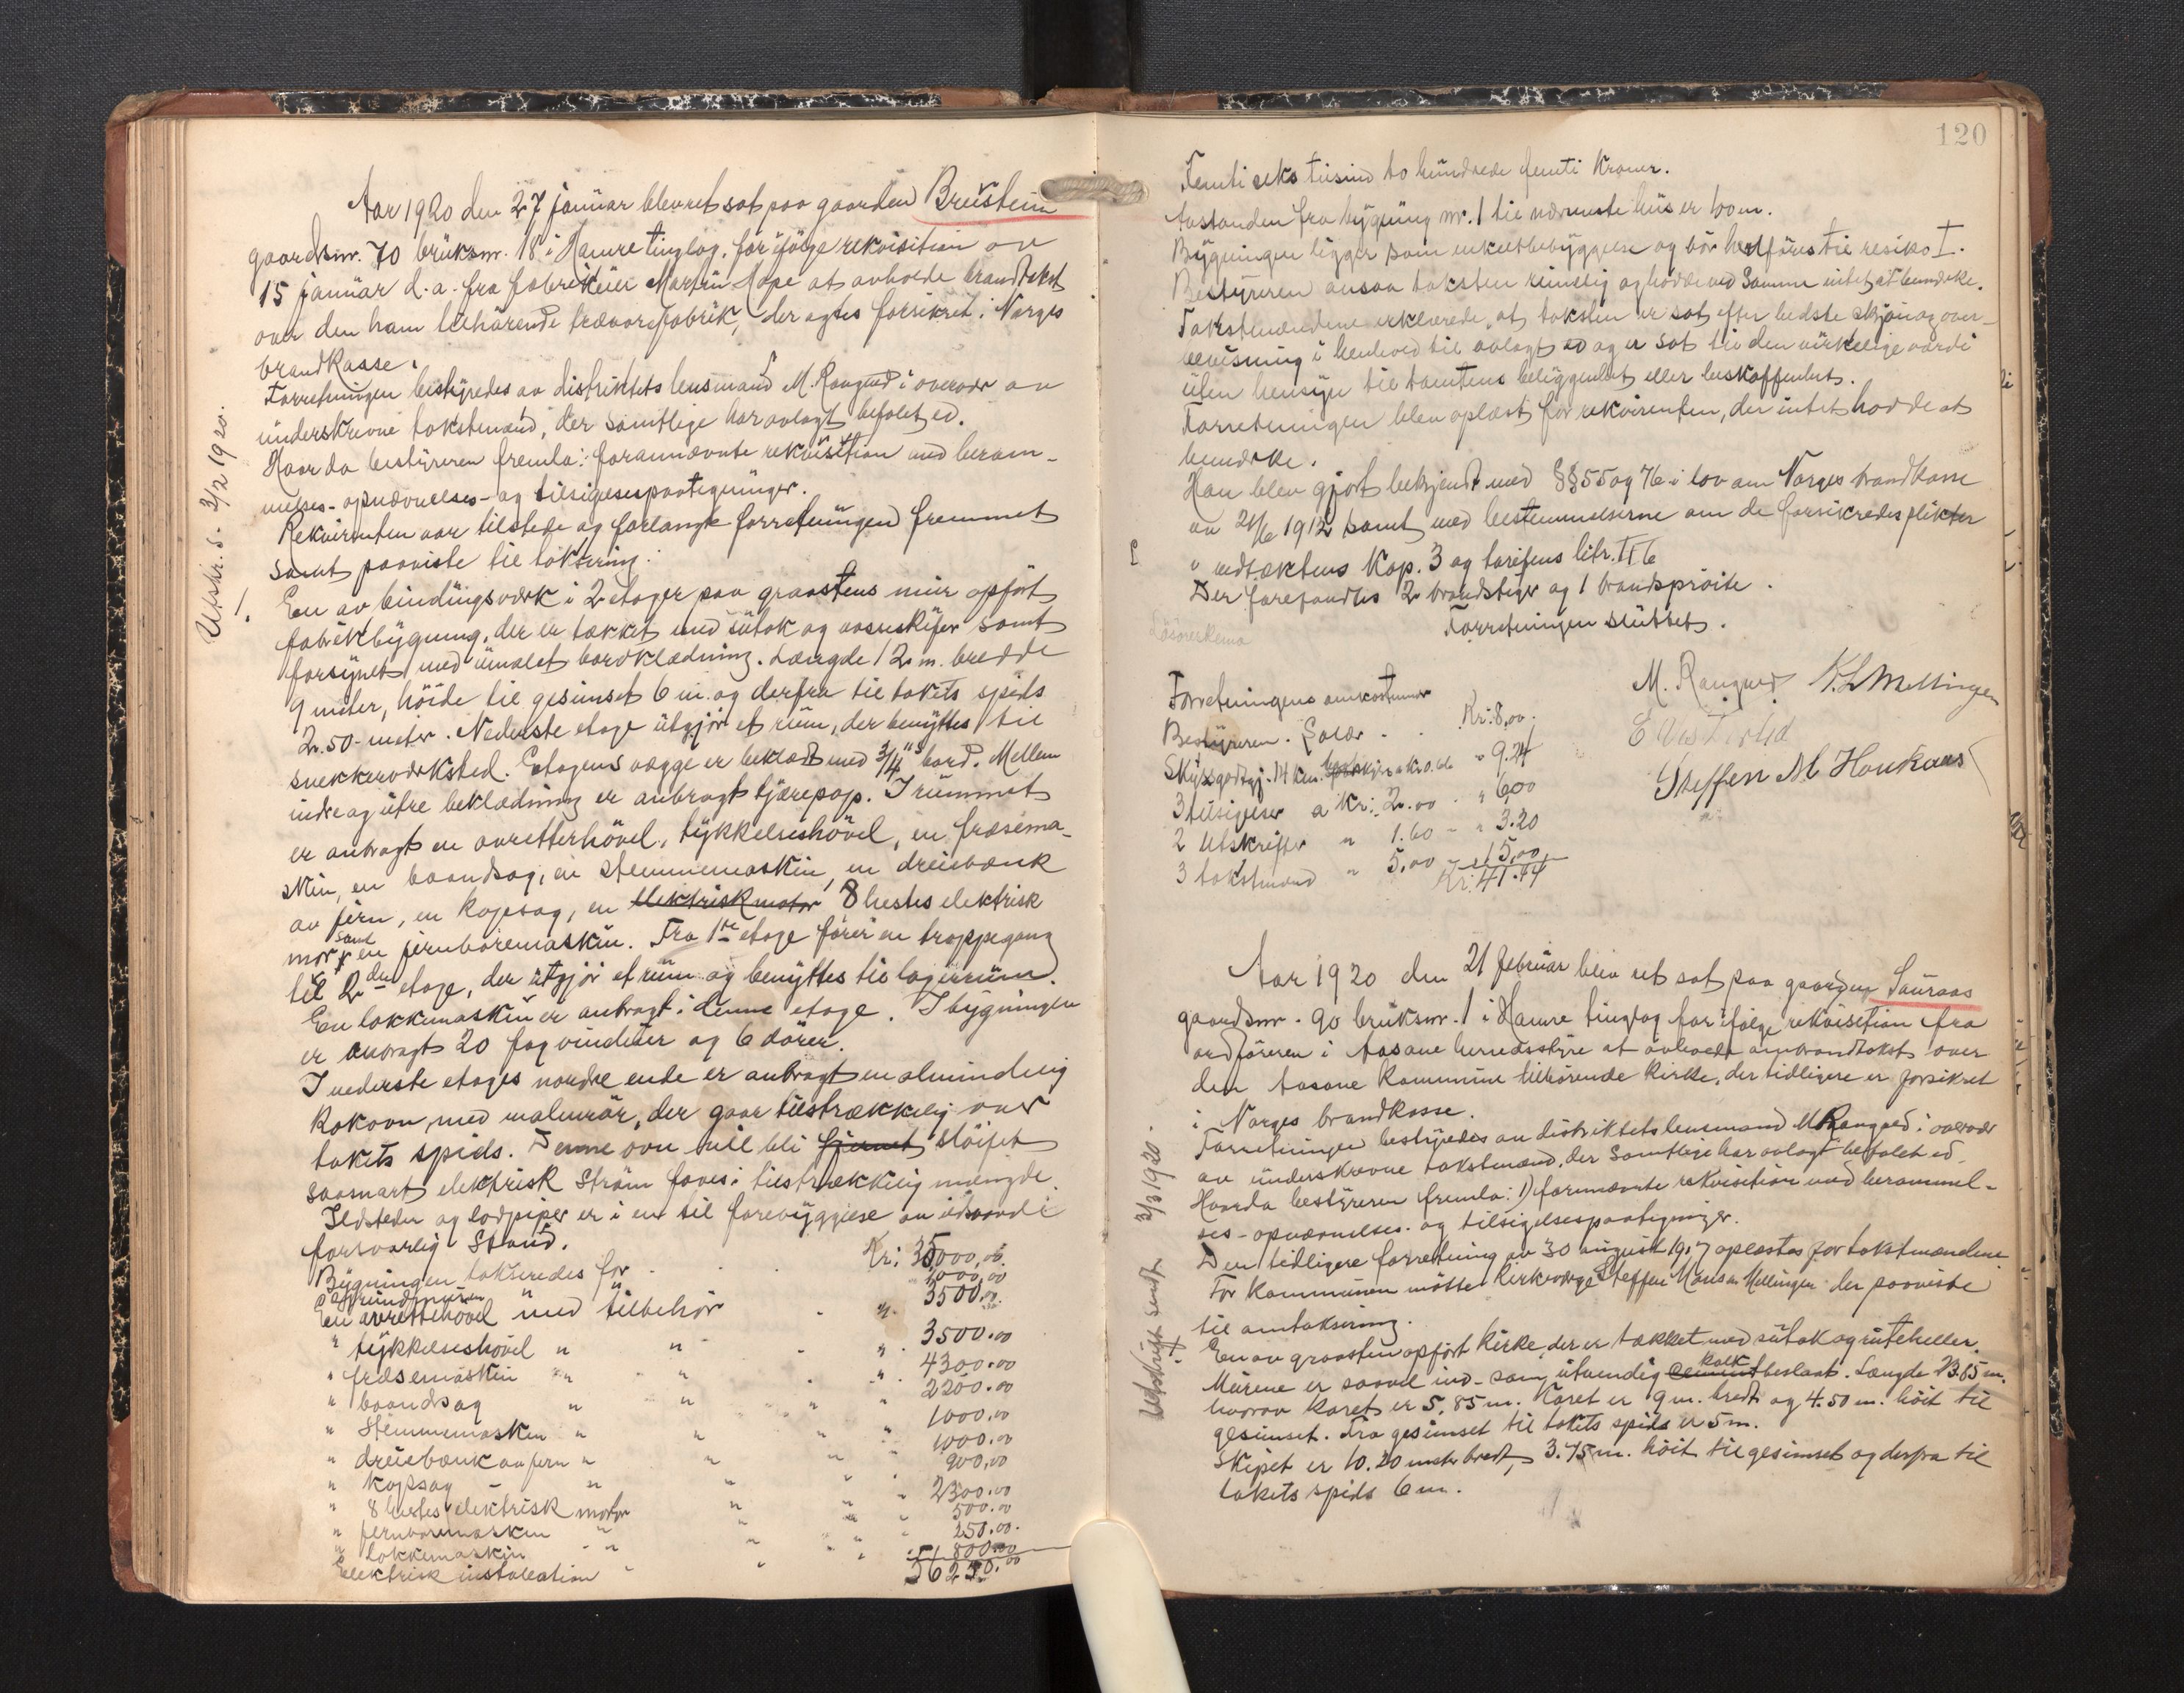 Utskr. s. 3/2 1920.
Aar 1920 den 27 januar blev ret sat paa gaarden Breistein
gaardsnr. 70 bruksnr. 18 i Hamre tinglag, for ifølge rekvisition av
15 januar d. a. fra fabrikeier Martin Hope at avholde brandtakst
over den ham tilhørende trævarefabrik, der agtes forsikret i Norges
brandkasse.
Forretningen bestyredes av distriktets lensmand M. Rongved i overvær av
underskrevne takstmænd, der samtlige har avlagt befalet ed.
Hvorda bestyreren fremla: forannævnte rekvisition med beram-
melses- opnævnelses- og tilsigelsespaategninger.
Rekvirenten var tilstede og forlangte forretningen fremmet
samt paaviste til taksering:
1. En av bindingsverk i 2 etager paa graastens mur opført
fabrikbygning, der er tækket med sutak og aasneskifer samt
forsynet med umalet bordklædning. Længde 12 m. bredde
9 meter, høide til gesimset 6 m. og derfra til takets spids
2.50 meter. Nederste etage utgjør et rum, der benyttes til
snekkerværksted. Etagens vægge er beklædt med 3/4" bord. Mellem
indre og ytre beklædning er anbragt tjærepap. I rummet
er anbragt en avretterhøvel, tykkelseshøvel, en fræsema-
skin, en baandsag, en stemmemaskin, en dreiebænk
av jern, en kapsag, en elektrisk motor 8 hestes elektrisk
motor samt en jernboremaskin. Fra 1ste etage fører en trappegang
til 2den etage, der utgjør et rum og benyttes til lagerrum.
En lokkemaskin er anbragt i denne etage. I bygningen
er anbragt 20 fag vinduer og 6 dører.
I nederste etages nordre ende er anbragt en almindelig
kokovn, med malmrør, der gaar tilstrækkelig over
takets spids. Denne ovn vil bli fjernet sløifet
saasnart elektrisk strøm faaes i tilstrækkelig mængde.
Ildsteder og lodpiper er i en til forebyggelse av ildsvaade
forsvarlig stand.
Bygningen takseredes for - . . Kr: 35000,00.
Grundmuren 1000,00
En avrettehøvel med tilbehør - " 3500,00
" tykkelseshøvel " " - " 3500.00
" fræsemaskin " " " 4300.00
" baandsag " " " " 2200.00
" stemmemaskin " " " " 1000.00
" dreiebænk av jern " " " " 1000.00
" kapsag - " " " 900,00
" 8 hestes elektrisk motor " " " 2300.00
" jernboremaskin " " " " 500.00
" lokkemaskin " " " " 250.00.
Elektrisk installation " " " 800.00
56250.00
120
Femti seks tusind to hundrede femti Kroner.
Avstanden fra bygning nr. 1 til nærmeste hus er 100 m.
Bygningen ligger som enkeltbebyggelse og bør henføres til resiko I.
Bestyreren ansaa taksten rimelig og hadde ved samme intet at bemerke.
Takstmændene erklærede, at taksten er sat efter bedste skjøn og over-
bevisning i henhold til avlagt ed og er sat til den virkelige værdi
uten hensyn til tomtens beliggenhet eller beskaffenhet.
Forretningen blev oplæst for rekvirenten, der intet hadde at
bemerke.
Han blev gjort bekjendt med §§ 55 og 76 i lov om Norges brandkasse
av 21/6 1912 samt med bestemmelserne om de forsikredes plikter
i vedtæktens Kap. 3 og tarifens litr. II 6
Der forefandtes 2 brandstiger og 1 brandsprøite.
Forretningen sluttet.
Løsøreskema
M. Rongved K. L. Mellingen
E. Vestlid
Steffen M. Haukaas
Forretningens omkostninger
Bestyreren. Salær - . . Kr: 8,00.
Skyssgodtgj. 14 km. a kr 0.66 " 9.24
3 tilsigelser a kr: 2.00 - " 6,00
2 utskrifter " 1.60 - " 3.20
3 takstmænd " 5,00 - " 15,00
Kr: 41.44
Utskrift sendt 3/3 1920.
Aar 1920 den 21 februar blev ret sat paa gaarden Sauraas
gaardsnr. 90 bruksnr. 1 i Hamre tinglag for ifølge rekvisition fra
ordføreren i Aasane herredsstyre at avholde ombrandtakst over
den Aasane kommune tilhørende kirke, der tidligere er forsikret
i Norges brandkasse.
Forretningen bestyredes av distriktets lensmand M Rongved i overvær
av underskrevne takstmænd, der samtlige har avlagt befalet ed.
Hvorda bestyreren fremla: 1) formævnte rekvisition med berammel-
ses- opnævnelses- og tilsigelsespaategninger.
Den tidligere forretning av 30 august 1917 oplæstes for takstmændene.
For kommunen møtte kirkeværge Steffen Monsen Mellingen der paaviste
til omtaksering.
1. En av graasten opført kirke, der er tækket med sutak og ruteheller.
Murene er saavel ind- som utvendig cement kalkbeslaat. Længde 23.65 m.
hvorav koret er 5,85 m. Koret er 9 m. bredt og 4.50 m. høit til
gesimset. Fra gesimset til takets spids er 5 m.
Skipet er 10.20 meter bredt, 3.75 m. høit til gesimset og derfra til
takets spids 6 m.